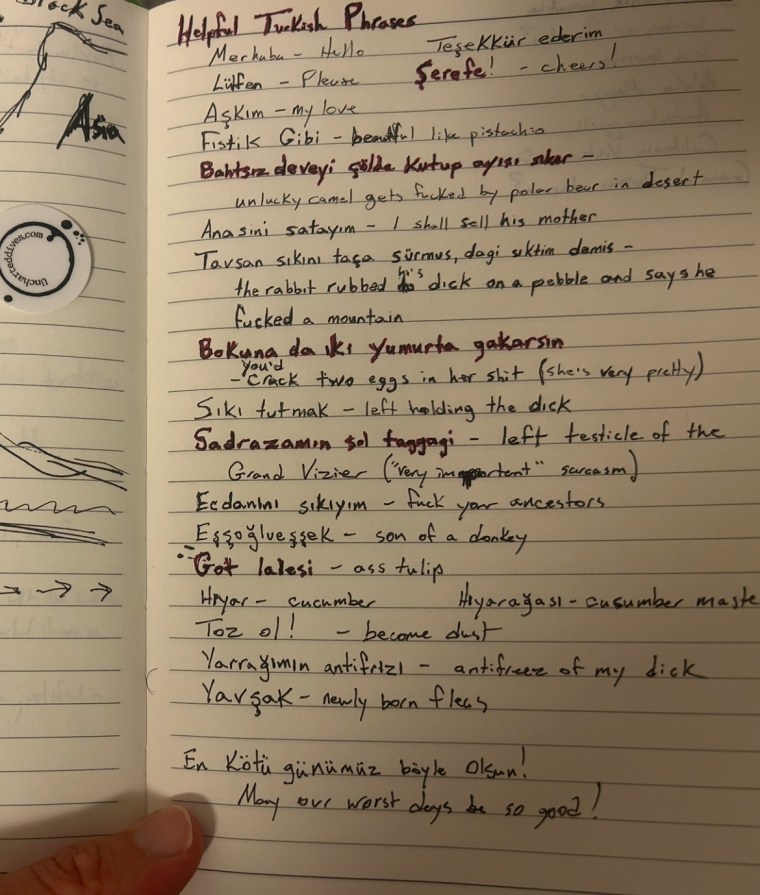 Black Sea
Asia
Unchartteddives.com
Helpful Turkish Phrases
Merhaba - Hello Teşekkür ederim
Lütfen - Please Şerefe! - cheers!
Aşkım - my love
Fıstık Gibi - beautiful like pistachio
Bahtsız deveyi çölde kutup ayısı sıker -
unlucky camel gets fucked by polar bear in desert
Anasini satayım - I shall sell his mother
Tavsan sıkını taşa sürmus, dagi sıktim demis -
the rabbit rubbed his dick on a pebble and says he
fucked a mountain
Bokuna da iki yumurta gakarsın
- you'd crack two eggs in her shit (she's very pretty)
Sıkı tutmak - left holding the dick
Sadrazamın sol taggagi - left testicle of the
Grand Vizier ("very important" sarcasm)
Ecdanını sıkıyım - fuck your ancestors
Eşşoğlueşşek - son of a donkey
Got lalesi - ass tulip
Hıyar - cucumber Hıyarağası - cucumber maste
Toz ol! - become dust
Yarrağımın antifrızı - antifreez of my dick
Yavşak - newly born fleas
En Kötü günümüz böyle olsun!
May our worst days be so good!